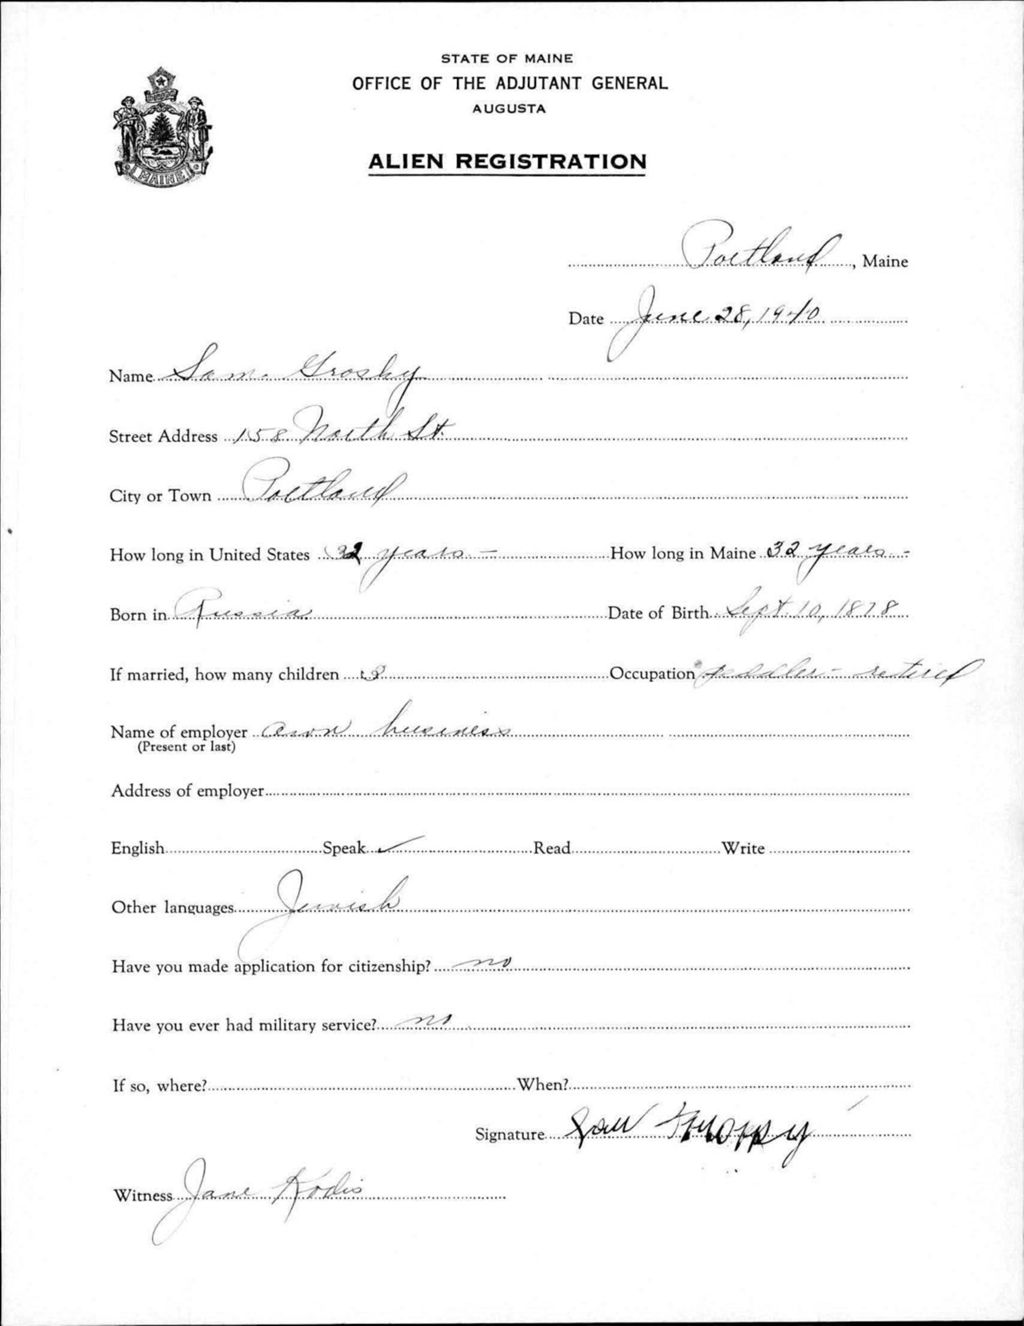 STATE OF MAINE
OFFICE OF THE ADJUTANT GENERAL
AUGUSTA
ALIEN REGISTRATION
MAINE
Portland, Maine
Date June 28, 1940
Name Sam. Grosky
Street Address 158 North St.
City or Town Portland
How long in United States 32 years - How long in Maine 32 years -
Born in Russia Date of Birth Sept. 10, 1878
If married, how many children 3 Occupation peddler - retired
Name of employer own business
(Present or last)
Address of employer
English Speak ✓ Read Write
Other languages Jewish
Have you made application for citizenship? no
Have you ever had military service? no
If so, where? When?
Signature
Witness Jane Kodis